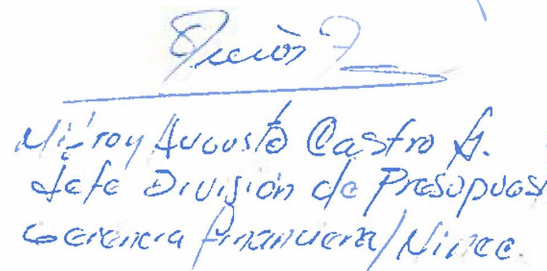 Augusto Castro G.
Jefe División de Presupues
Gerencia Financiera/